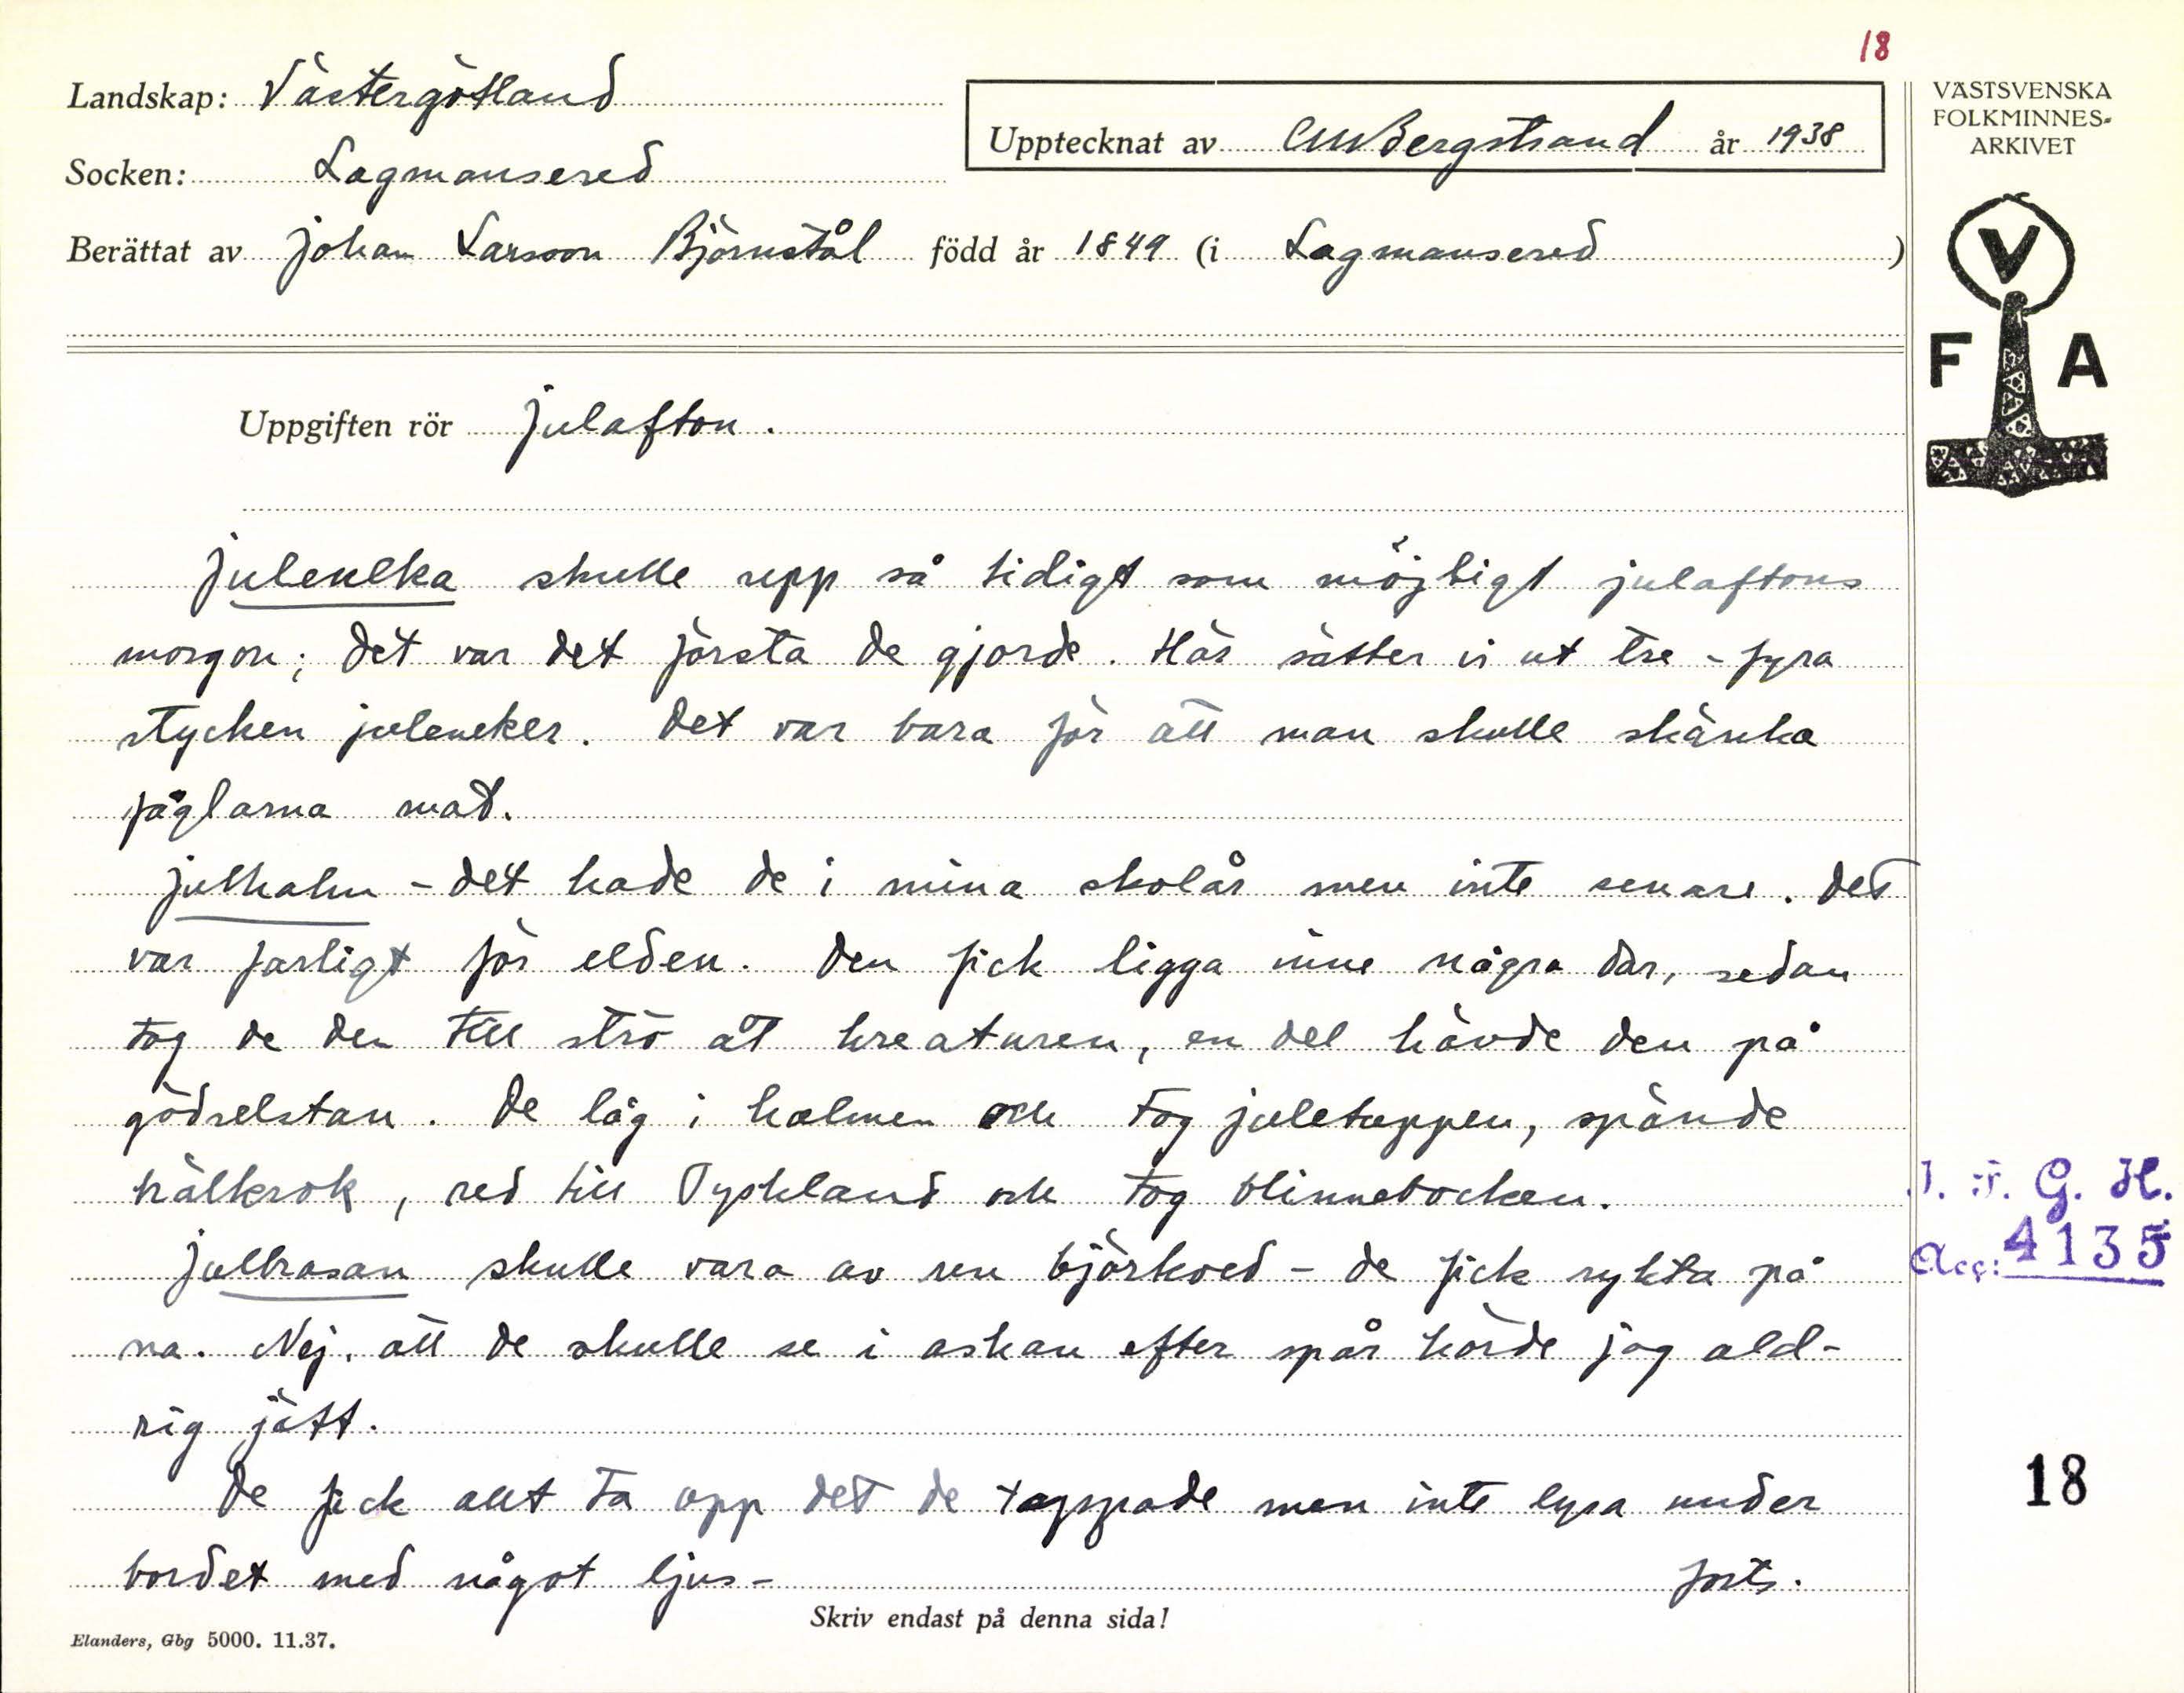 18
Landskap: Västergötland
Upptecknat av CMBergstrand år 1938
Socken: Lagmansered
Berättat av Johan Larsson Björnstål född år 1849 (i Lagmansered)
VÄSTSVENSKA
FOLKMINNES-
ARKIVET
V
F A
Uppgiften rör Julafton.
Juleneka skulle upp så tidigt som möjligt julaftons
morgon; det var det första de gjorde. Här sätter vi ut tre - fyra
stycken juleneker. Det var bara för att man skulle skänka
fåglarna mat.
Julhalm - det hade de i mina skolår men inte senare. Det
var farligt för elden. Den fick ligga inne några dar, sedan
tog de den till strö åt kreaturen, en del hävde den på
gödselstan. De låg i halmen och tog juletuppen, spände
hälkrok, red till Tyskland och tog blinnebocken.
Julbrasan skulle vara av ren björkved - de fick rykta på
na. Nej, att de skulle se i askan efter spår hörde jag ald-
rig jätt.
De fick allt ta opp det de tappade men inte lysa under
bordet med något ljus-
forts.
J. F. G. H.
Acc: 4135
18
Skriv endast på denna sida!
Elanders, Gbg 5000. 11.37.